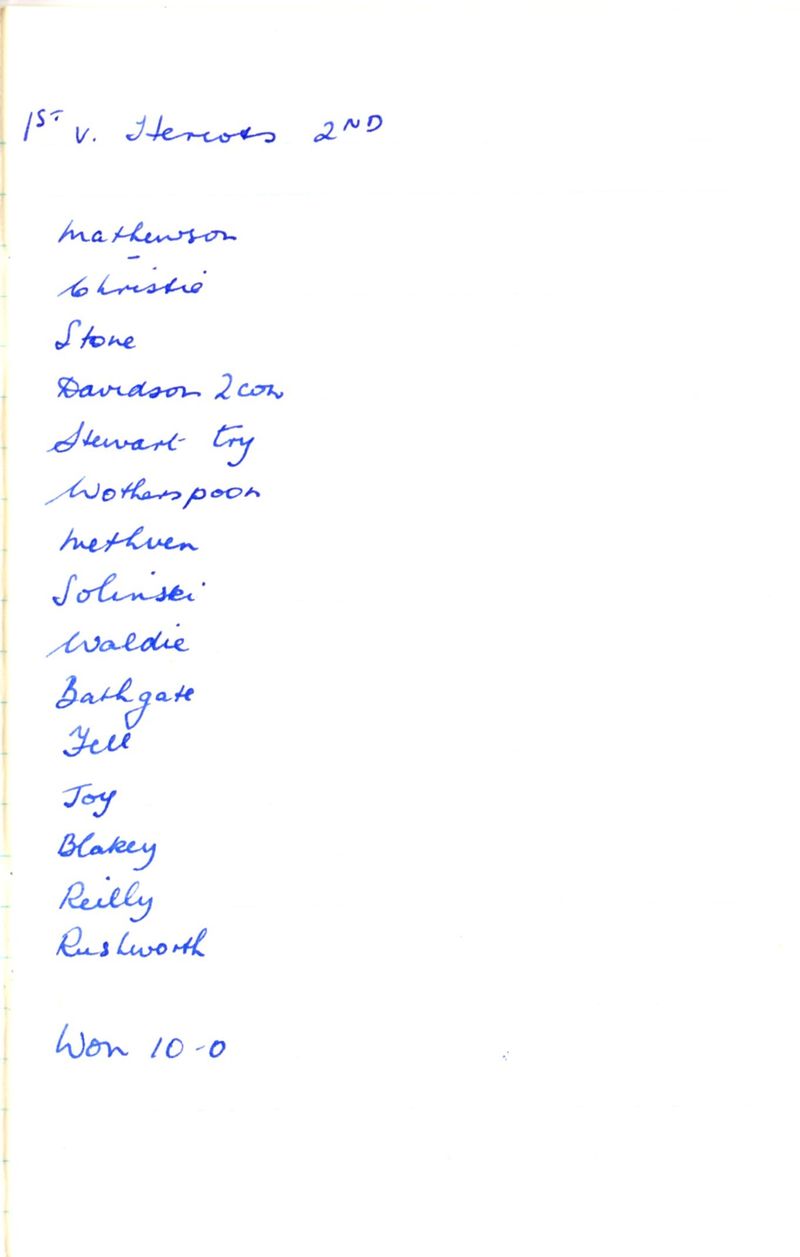 1ST v. Heriots 2ND
Mathewson
Christie
Stone
Davidson 2 con
Stewart try
Wotherspoon
Methven
Solinski
Waldie
Bathgate
Fell
Joy
Blakey
Reilly
Rushworth
Won 10-0